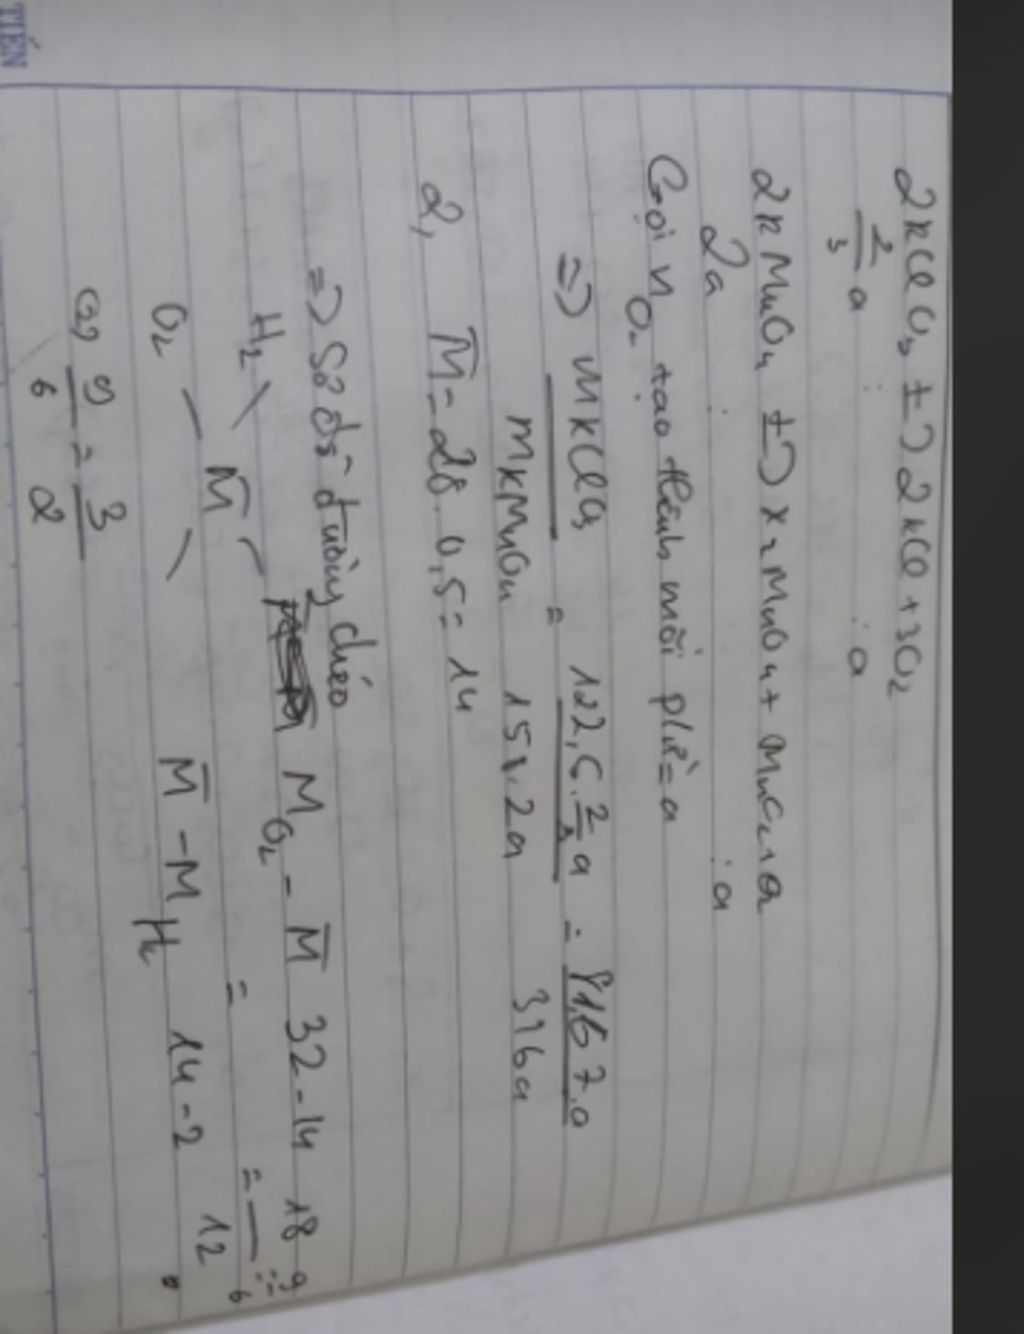 TIẾN
2KClO3 t-> 2KCl + 3O2
2/3 a : a
2KMnO4 t-> K2MnO4 + MnO2 + O2
2a : a
Gọi n O2 tạo thành mỗi pứ = a
=> mKClO3 / mKMnO4 = 122,5.2/3 a / 158.2a = 81,67.a / 316a
2, M̄ = 28.0,5 = 14
=> Sơ đồ đường chéo
H2 \ M̄ / O2 M O2 - M̄ / M̄ - M H2 = 32-14 / 14-2 = 18 / 12 = 9 / 6
9/6 = 3/2